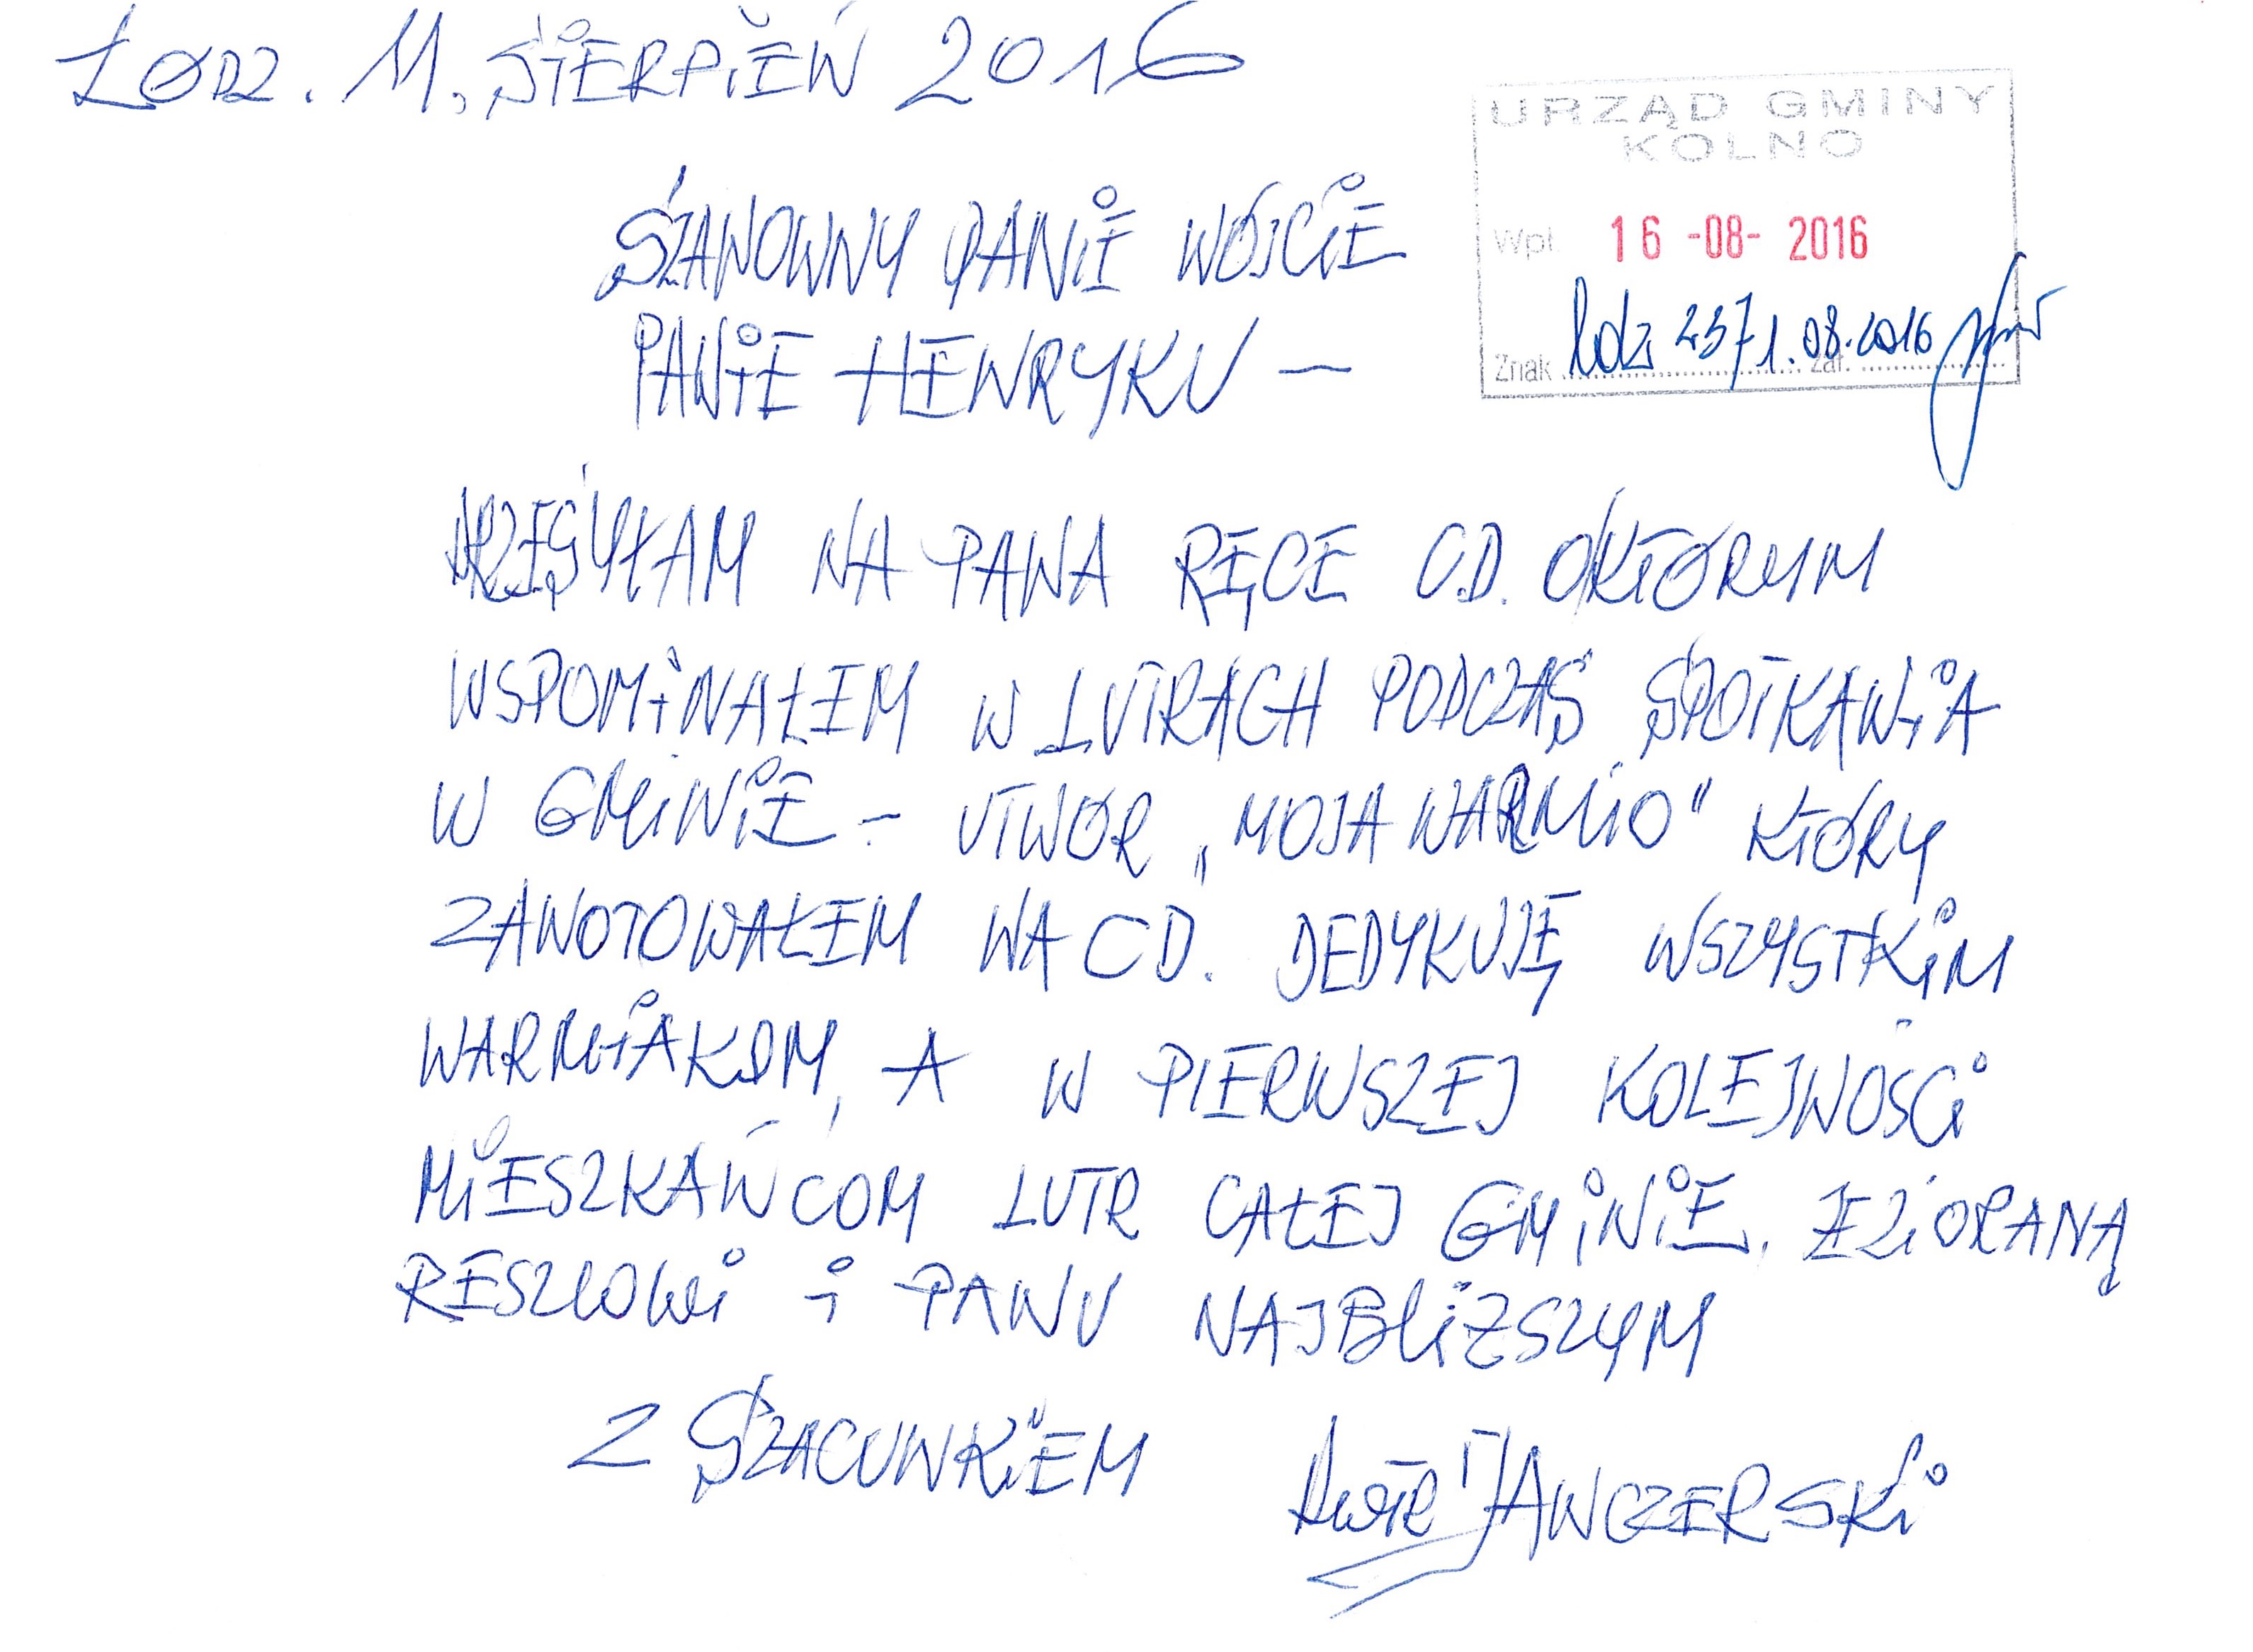 ŁÓDZ. 11, SIERPIEŃ 2016
URZĄD GMINY
KOLNO
Wpł. 16 -08- 2016
Znak 2371.08.2016 zał.
SZANOWNY PANIE WÓJCIE
PANIE HENRYKU -
PRZESYŁAM NA PANA RĘCE C.D. O KTÓRYM
WSPOMINAŁEM W LUTRACH PODCZAS SPOTKANIA
W GMINIE - UTWÓR „MOJA WARMIO" KTÓRY
ZANOTOWAŁEM NA CD. DEDYKUJĘ WSZYSTKIM
WARMIAKOM, A W PIERWSZEJ KOLEJNOŚCI
MIESZKAŃCOM LUTR CAŁEJ GMINIE, JEZIORANĄ
RESZLOWI i PANU NAJBLIŻSZYM
Z SZACUNKIEM
JANCZERSKI